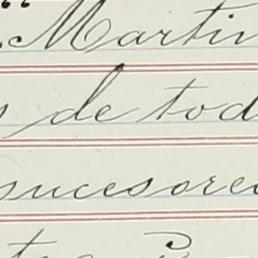 Martin
de tod
sucesores